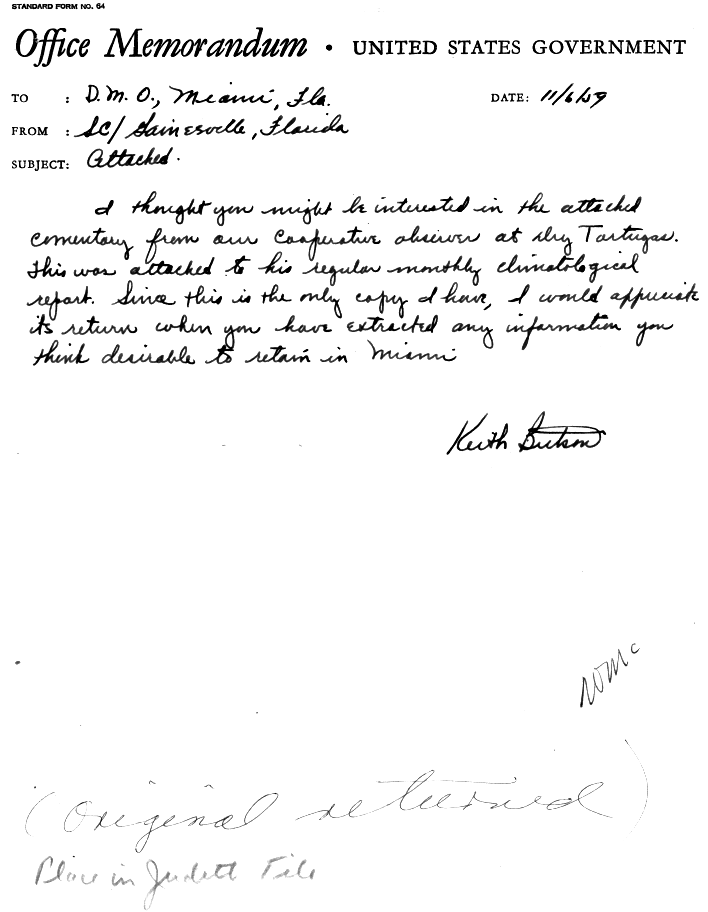 STANDARD FORM NO. 64
Office Memorandum • UNITED STATES GOVERNMENT
TO : D.M.O., Miami, Fla. DATE: 11/6/59
FROM : SC/Gainesville, Florida
SUBJECT: Attached.
I thought you might be interested in the attached
comentary from our cooperative observer at Dry Tortugas.
This was attached to his regular monthly climatological
report. Since this is the only copy I have, I would appreciate
its return when you have extracted any information you
think desirable to retain in Miami
Keith Butson
(original returned)
Place in Judett File